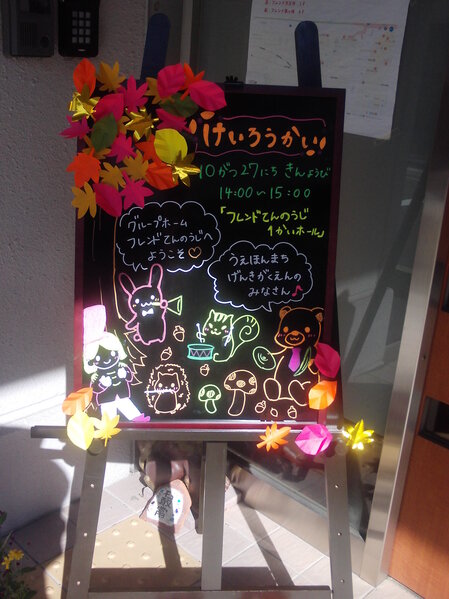 けいろうかい
10がつ27にち きんようび
14:00～15:00
「フレンドてんのうじ
1かいホール」
グループホーム
フレンドてんのうじへ
ようこそ♡
うえほんまち
げんきがくえんの
みなさん♪